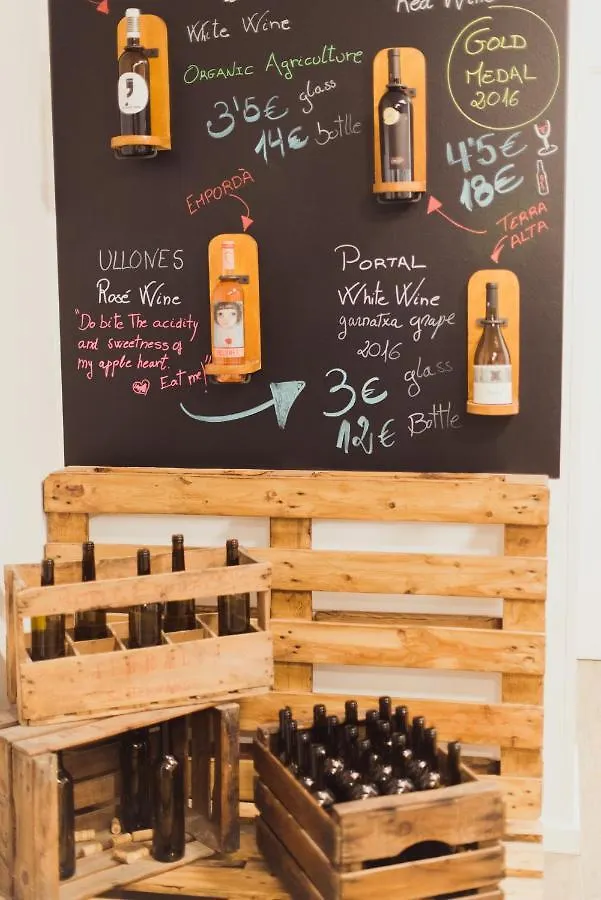 White Wine
Organic Agriculture
3'5€ glass
14€ bottle
Red Wine
GOLD
MEDAL
2016
4'5€
18€
EMPORDÀ
TERRA
ALTA
ULLONES
Rosé Wine
"Do bite The acidity
and sweetness of
my apple heart.
Eat me!"
PORTAL
White Wine
garnatxa grape
2016
3€ glass
12€ Bottle